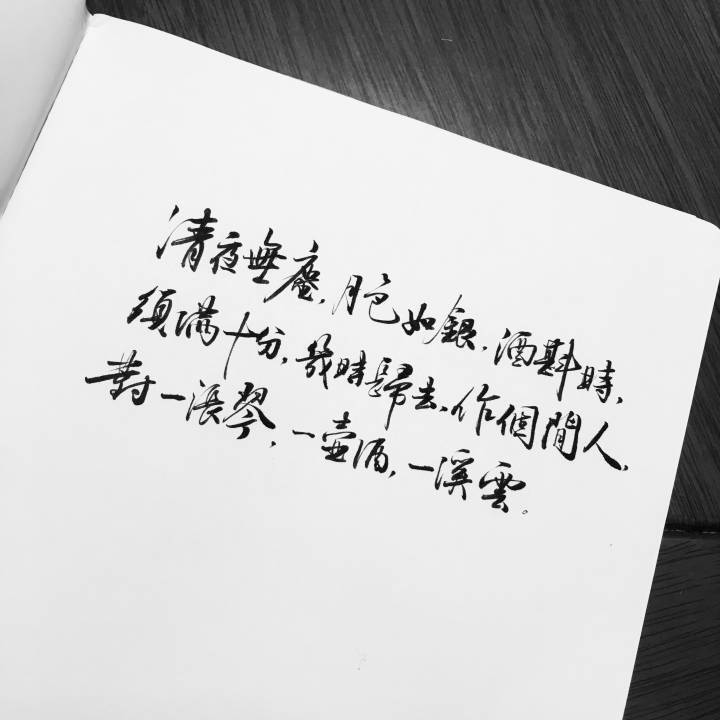 清夜無塵，月色如銀，酒斟時，
須滿十分，幾時歸去，作個閒人，
對一張琴，一壺酒，一溪雲。